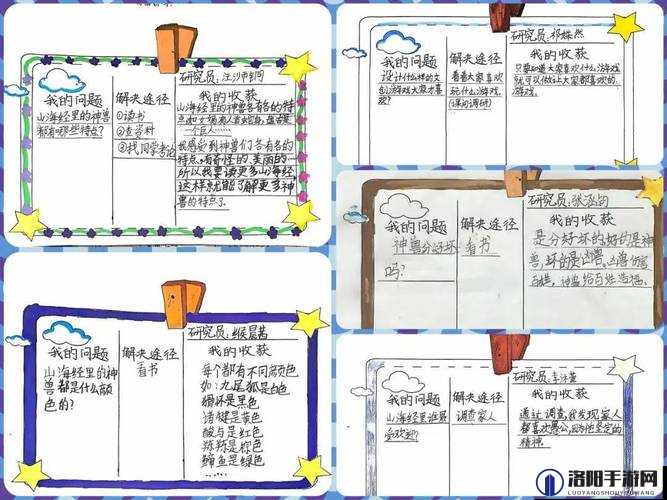 研究员:汪沙市
我的问题
山海经里的神兽
都有哪些特点?
解决途径
①读书
②查资料
③找同学讨论
我的收获
山海经里的神兽各有各的特
我感受到神兽们各有各的
特点,有奇怪的、美丽的…
所以我要读更多山海经
这样就能了解更多神
兽的特点了。
研究员:祁姝然
我的问题
设计什么样的文
创游戏大家才喜
欢?
解决途径
看看大家喜欢
玩什么游戏。
(课间调研)
我的收获
只要知道大家喜欢什么游戏
就可以做让大家都喜欢的
游戏。
研究员:张涵钧
我的问题
神兽分好坏
吗?
解决途径
看书
我的收获
是分好坏的好的是神
兽,坏的是凶兽。凶兽伤害
百姓,神兽给百姓造福。
研究员:缑晨茜
我的问题
山海经里的神
兽都是什么颜
色的?
解决途径
看书
我的收获
每个都有不同颜色
如:九尾狐是白色
猾怀是黑色
诸犍是黄色
酸与是红色
𩶯鱼是绿色
研究员:
我的问题
山海经里谁最
受欢迎?
解决途径
调查家人
我的收获
通过调查,我发现家人
都喜欢愚公,因为他坚定的
精神。
洛阳手游网
LUOYANGSHOUYOUWANG